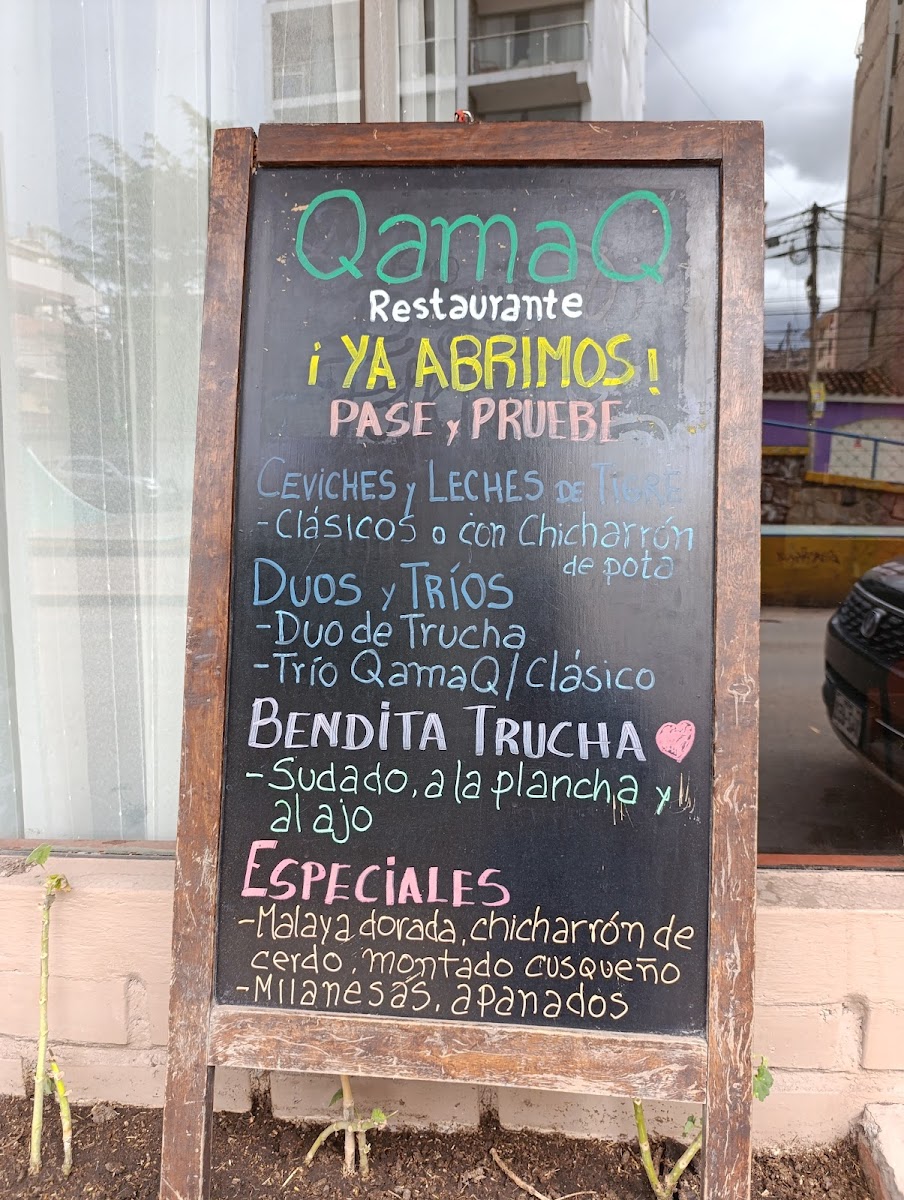 QamaQ
Restaurante
¡YA ABRIMOS!
PASE y PRUEBE
CEVICHES y LECHES DE TIGRE
-Clásicos o con Chicharrón
de pota
DUOS y TRÍOS
-Duo de Trucha
-Trío QamaQ/Clásico
BENDITA TRUCHA
-Sudado, a la plancha y
al ajo
ESPECIALES
-Malaya dorada, chicharrón de
cerdo, montado cusqueño
-Milanesas, apanados